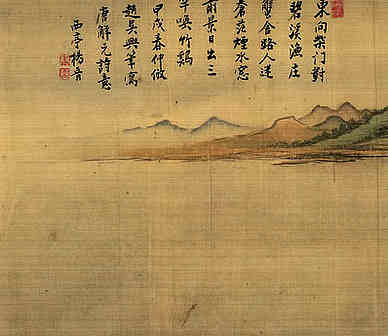 间柴门對
碧溪漁庄
蟹舍路人迷
蒼茫煙水窓
前景日出三
竿喚竹鷄
甲戌春仲倣
趙吳興筆寫
唐解元詩意
西亭楊晉